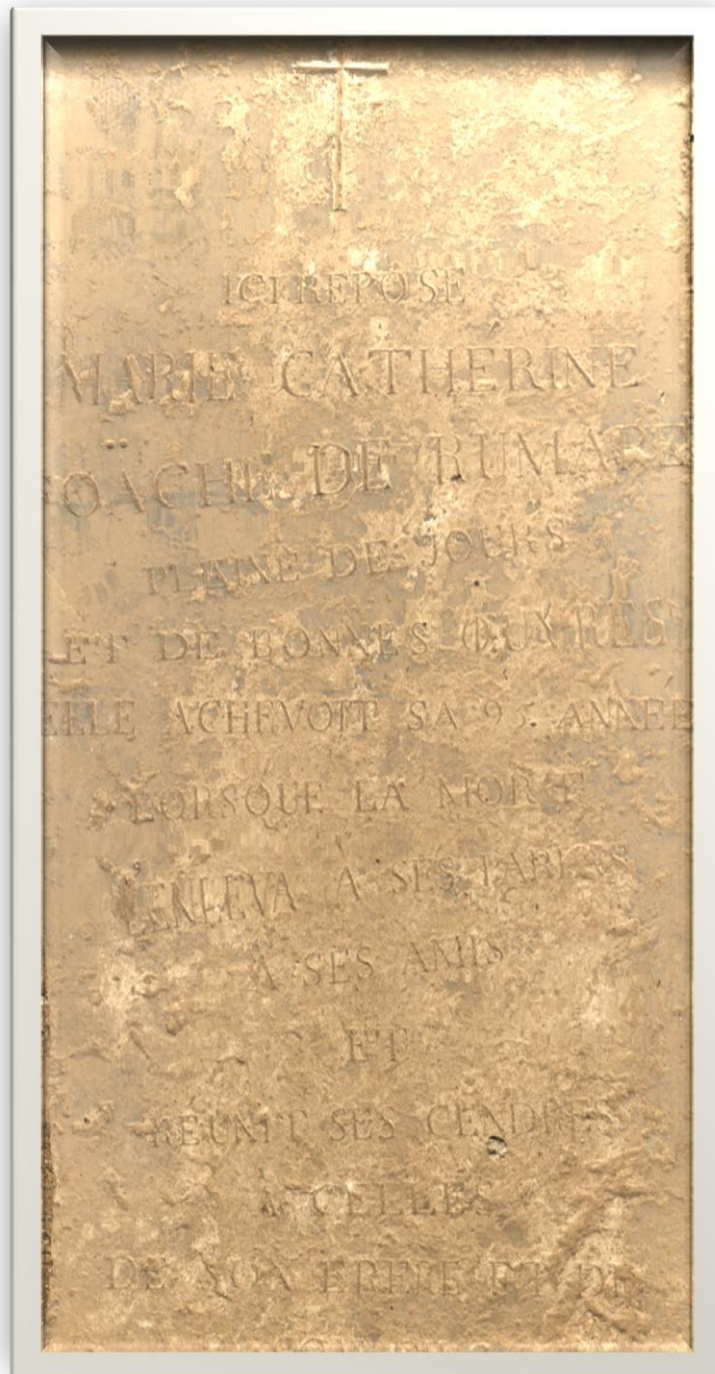 ICI REPOSE
MARIE CATHERINE
FOÄCHE DE RUMARE
PLAINE DE JOURS
ET DE BONNES ŒUVRES
ELLE ACHEVOIT SA 95. ANNEE
LORSQUE LA MORT
L'ENLEVA A SES PARENS
A SES AMIS
ET
REUNIT SES CENDRES
A CELLES
DE SON FRERE ET DE